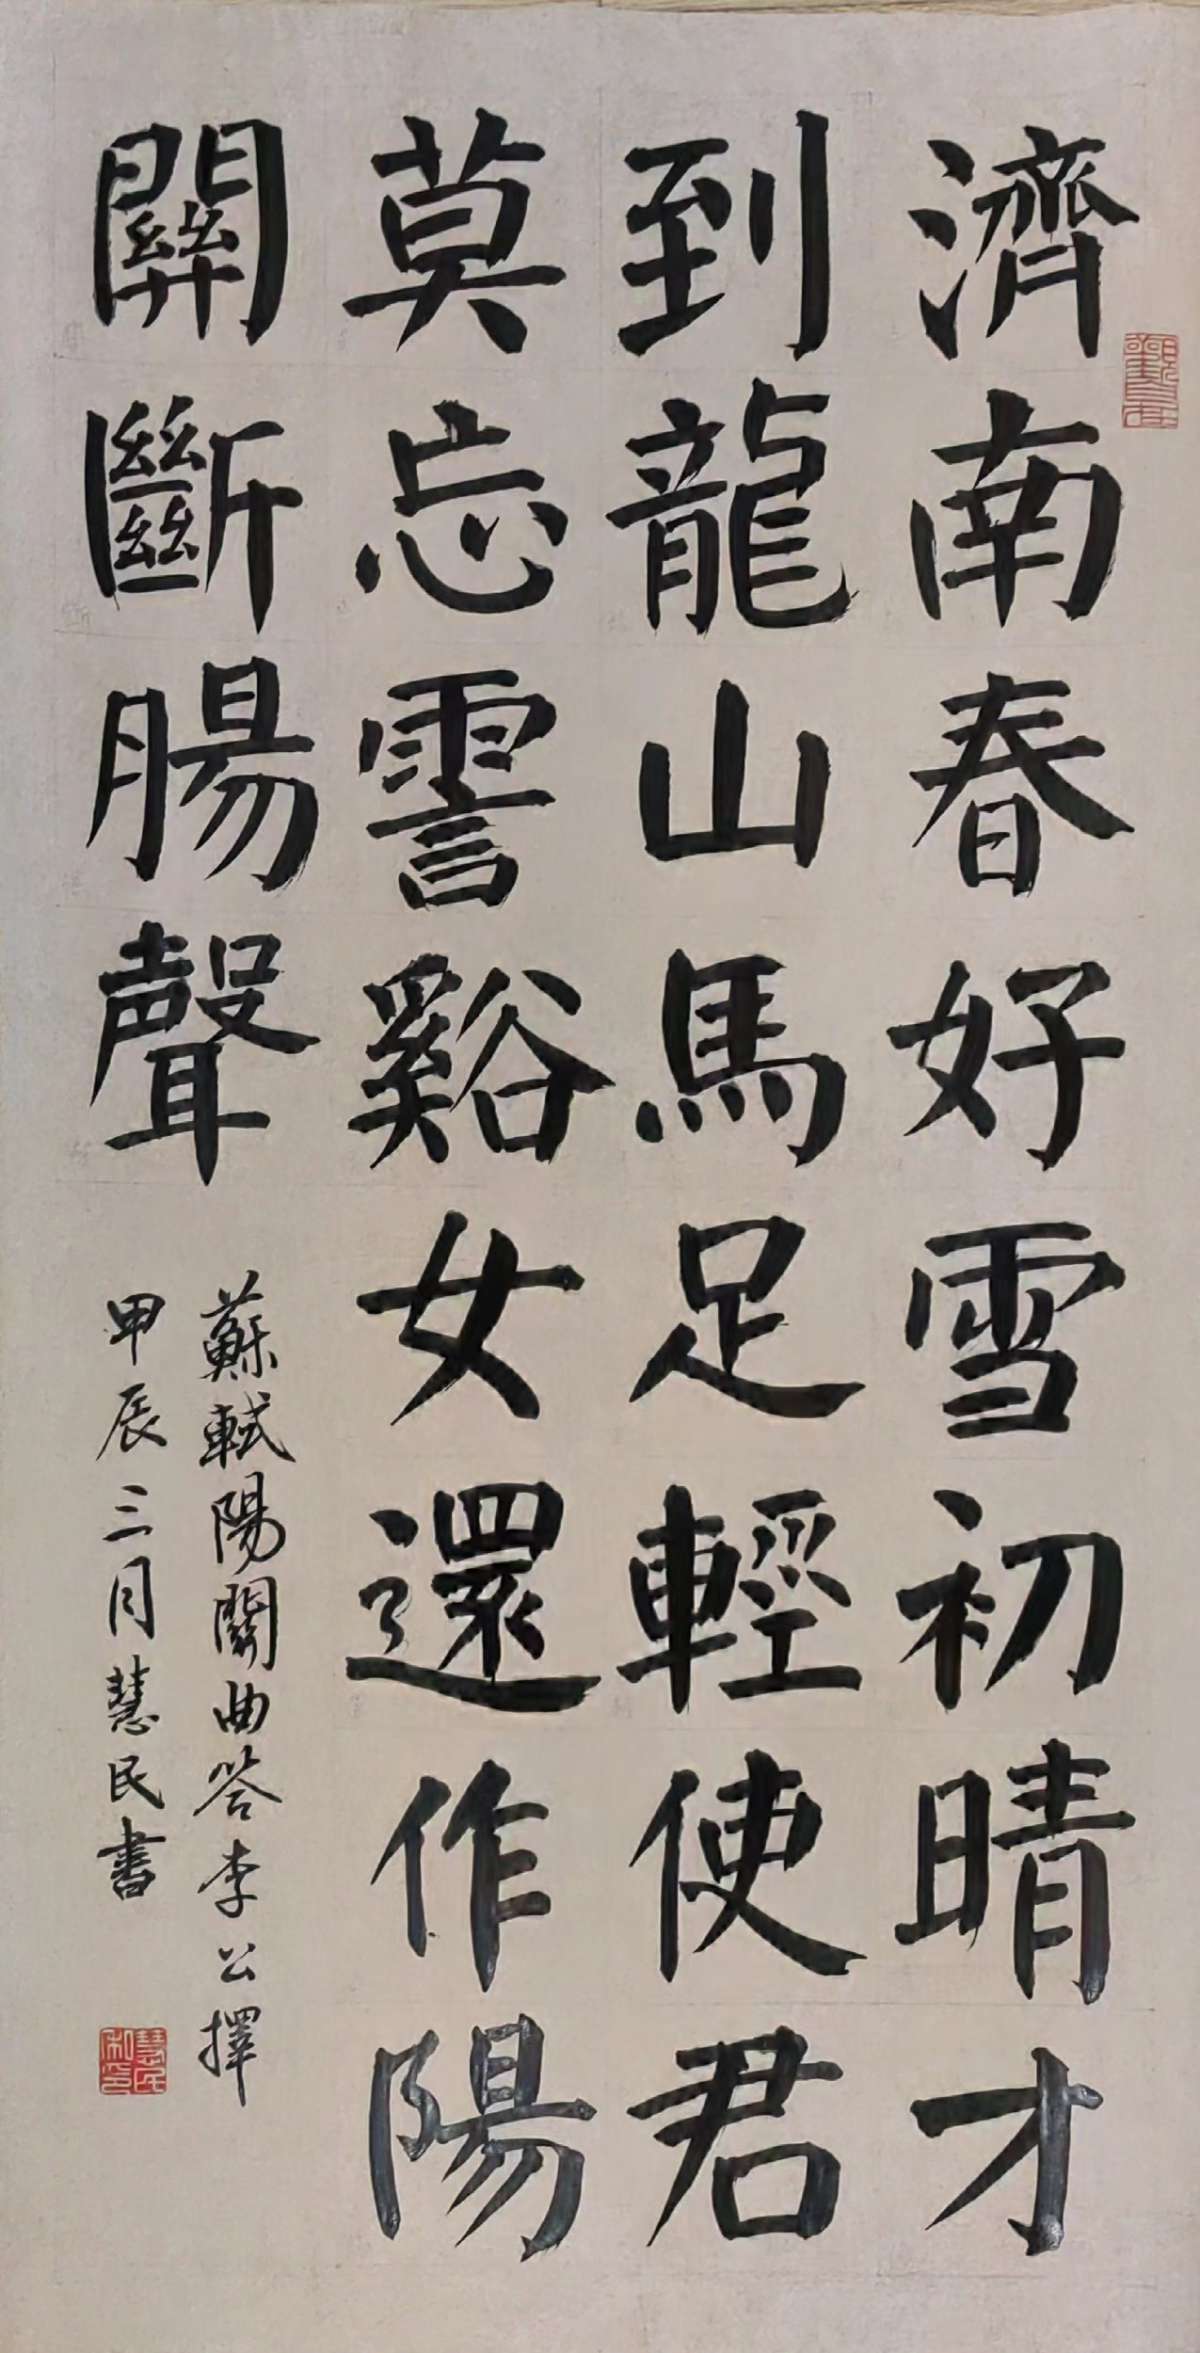 濟南春好雪初晴才
到龍山馬足輕使君
莫忘霅谿女還作陽
關斷腸聲
蘇軾陽關曲答李公擇
甲辰三月慧民書